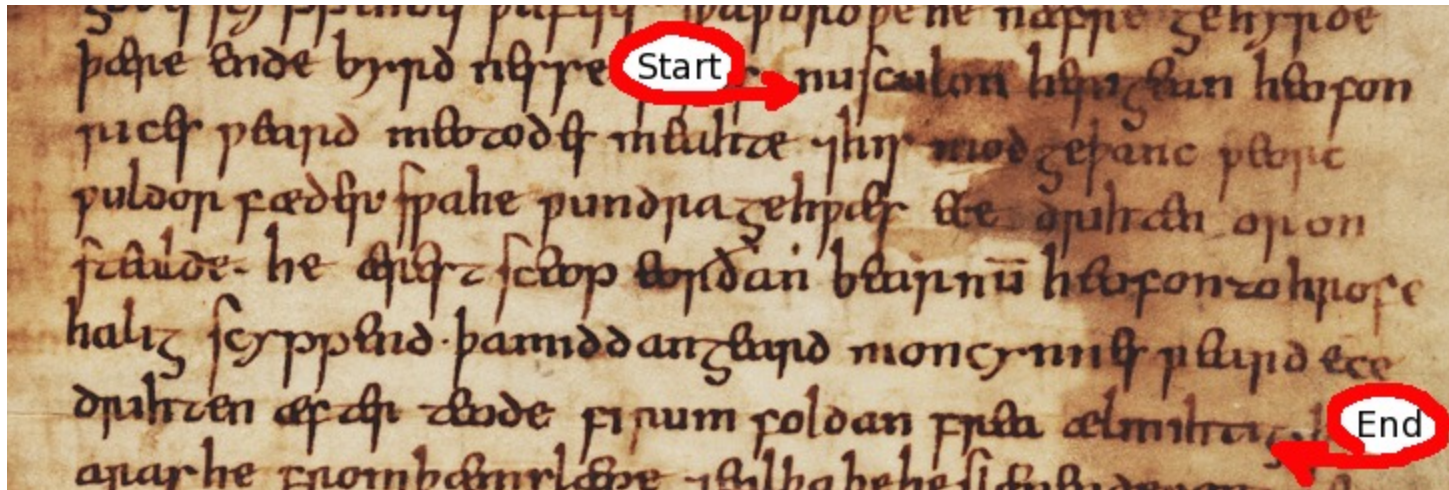 næfre gehyrde
þære ende byrd nesse Start nu sculon herigean heofon
rices ƿeard meotodes meahte ⁊ his mod geþanc ƿeorc
ƿuldor fæder sƿa he ƿundra gehƿæs ece drihten or on
stealde. he ærest sceop eorðan bearnū heofon to hrofe
halig scyppend. þa middangeard moncynnes ƿeard ece
drihten æfter teode firum foldan frea ælmihtig End